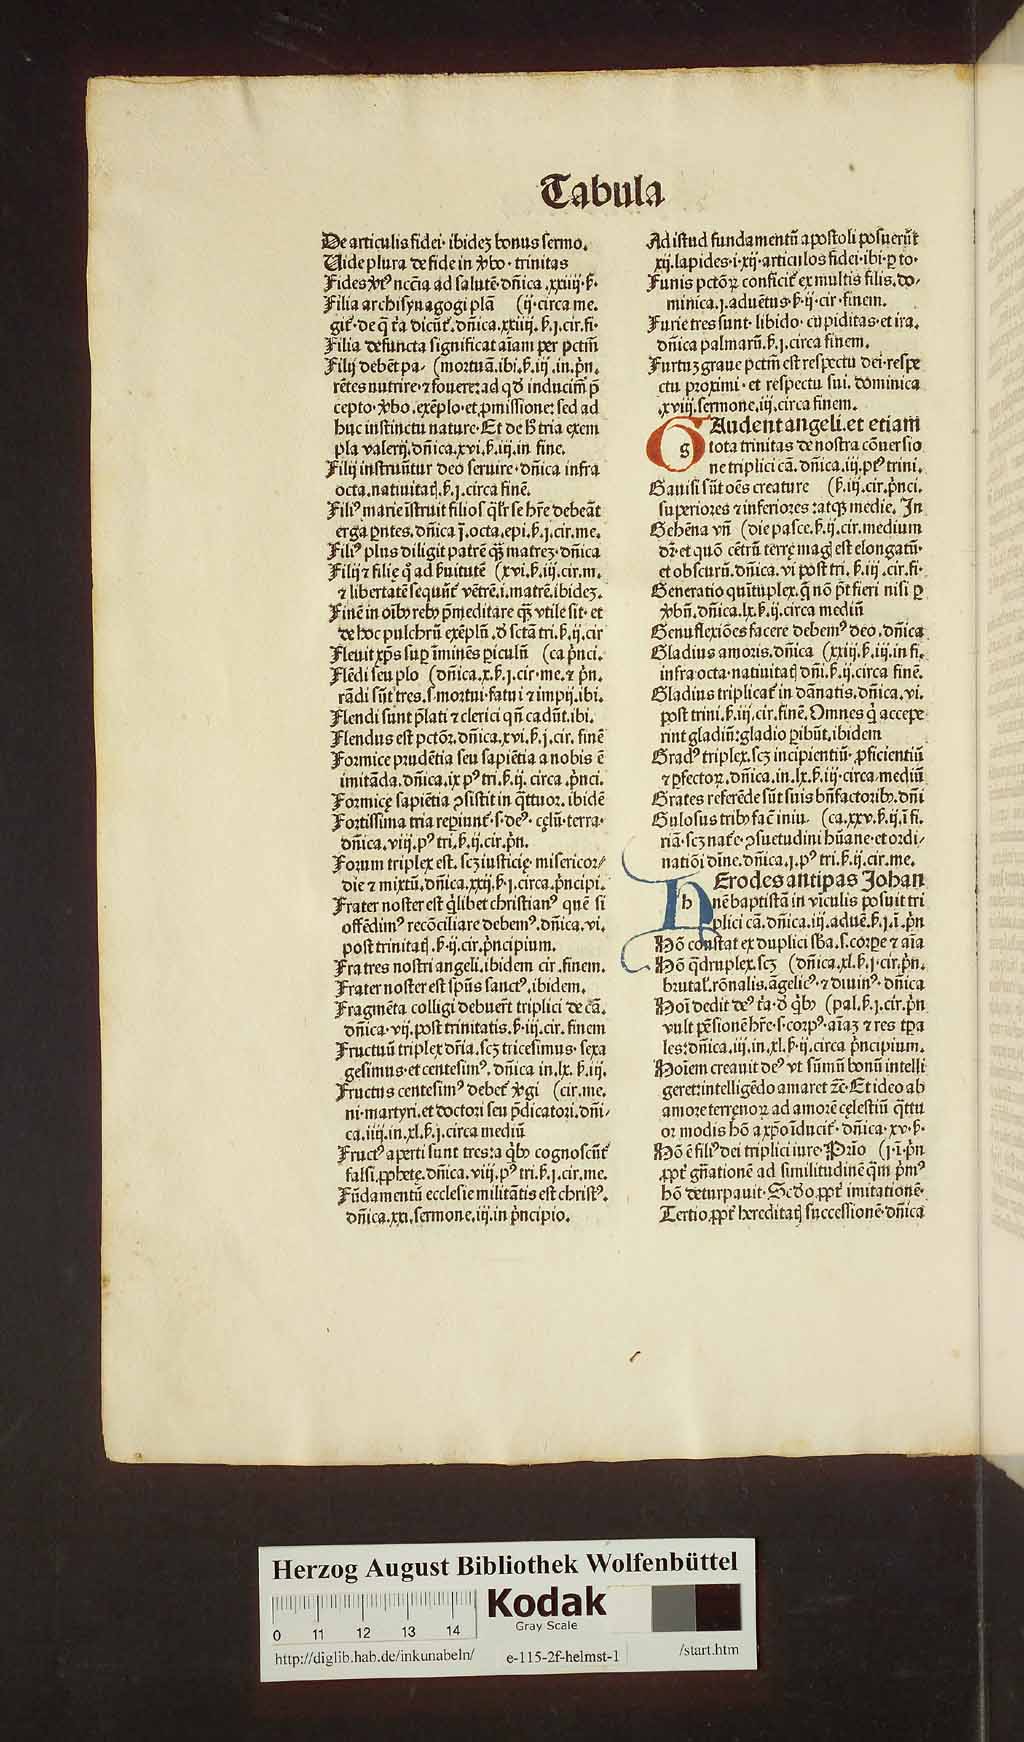 Tabula
De articulis fidei· ibidēʒ bonus sermo.
Uide plura de fide in v̾bo· trinitas
Fides xp̄i ncc̄ia ad salutē· dn̄ica .xxiiij· ẜ·
Filia archisynagogi plā (ij· circa me.
git̄· de q̄ tr̄a dicūt̄. dn̄ica.xxiiij. ẜ.j.cir.fi·
Filia defuncta significat aīam per pctm̄
Filij debēt pa- (mortuā.ibi.ẜ.iij .in.p̄n.
rētes nutrire· ⁊ fouere: ad qd̄ inducim̄ p̄
cepto· v̾bo .exēplo· et ꝓmissione: sed ad
huc instinctu nature· Et de h̄ tria exem
pla valerij. dn̄ica.xvi.ẜ.iij.in fine.
Filij instruūtur deo seruire· dn̄ica infra
octa. natiuitatꝭ.ẜ.j.circa finē.
Fili⁹ marie īstruit filios q̄lr̄ se hr̄e debeāt
erga pn̄tes. dn̄ica j̄.octa.epi.ẜ.j.cir.me.
Fili⁹ plus diligit patrē q̄ꝫ matreʒ· dn̄ica
Filij ⁊ filie q̄ ad ẜuitutē (xvi.ẜ.iij.cir.m.
⁊ libertatē sequūt̄ vētrē.i.matrē.ibideʒ.
Finē in oībꝰ rebꝰ p̄meditare q̄ꝫ vtile sit· et
de hoc pulchrū exēplū. d̄ sctā tri.ẜ.ij.cir
Fleuit xp̄s suꝑ īminēs ꝑiculū (ca p̄nci.
Flēdi seu plo (dn̄ica.x.ẜ.j.cir·me.⁊ p̄n.
rādi sūt tres.s.mortui· fatui ⁊ impij.ibi.
Flendi sunt p̄lati ⁊ clerici qn̄ cadūt.ibi.
Flendus est pctōꝛ. dn̄ica.xvi.ẜ.j.cir. finē
Formice prudētia seu sapiētia a nobis ē
imitāda. dn̄ica.ix p⁹ tri.ẜ.ij. circa .p̄nci.
Formicę sapiētia ꝯsistit in q̄ttuor. ibidē
Fortissima tria reꝑiunt̄· s· de⁹· cęlū· terra·
dn̄ica.viij.p⁹ tri.ẜ.ij.cir.p̄n.
Forum triplex est. scʒ iusticię· misericor/
die ⁊ mixtū. dn̄ica.xxij.ẜ·j.circa.p̄ncipi.
Frater noster est q̄libet christian⁹ quē si
offēdim⁹ recōciliare debem⁹. dn̄ica.vi.
post trinitatꝭ.ẜ·ij.cir.p̄ncipium.
Fratres nostri angeli.ibidem cir.finem.
Frater noster est spūs sanct⁹.ibidem.
Fragmēta colligi debuer̄t triplici de cā.
dn̄ica· vij.post trinitatis.ẜ·iij.cir. finem
Fructuū triplex dr̄ia. scʒ tricesimus· sexa
gesimus· et centesim⁹. dn̄ica in.lx. ẜ.iij.
Fructus centesim⁹ debet̄ v̾gi (cir.me.
ni· martyri. et doctori seu p̄dicatori. dn̄i·
ca.iiij.in.xl.ẜ.j.circa mediū
Fruct⁹ aperti sunt tres: a q̄bꝰ cognoscūt̄
falsi.ꝓphetę. dn̄ica.viij.p⁹ tri.ẜ.j.cir.me.
Fūdamentū ecclesie militātis est christ⁹.
dn̄ica.xxi.sermone.iij.in p̄ncipio.
Ad istud fundamentū apostoli posuerūt
xij.lapides·i·xij·articulos fidei·ibi·ꝑ to·
Funis pctōꝝ conficit̄ ex multis filis. do/
minica.j.aduētus·ẜ·ij·cir·finem.
Furie tres sunt· libido· cupiditas· et ira.
dn̄ica palmarū.ẜ.j.circa finem.
Furtuʒ graue pctm̄ est respectu dei· respe
ctu proximi· et respectu sui. dominica
.xviij.sermone.iij.circa finem.
GAudent angeli. et etiam
g
tota trinitas de nostra cōuersio
ne triplici cā. dn̄ica.iij.pt⁹ trini.
Gauisi sūt oēs creature (ẜ.iij.cir.p̄nci.
superiores ⁊ inferiores: atqꝫ medie. In
Gehēna vn̄ (die pasce.ẜ.ij.cir.medium
dr̄· et quō cētrū terrę magꝭ est elongatū·
et obscurū. dn̄ica. vi post tri. ẜ.iij .cir.fi·
Generatio quītuplex. q̄ nō p̄t fieri nisi ꝑ
v̾bū. dn̄ica.lx.ẜ.ij.circa mediū
Genuflexiōes facere debem⁹ deo. dn̄ica
Gladius amoris. dn̄ica (xxiij.ẜ.iij.in fi.
infra octa· natiuitatꝭ dn̄i.ẜ.ij.circa finē.
Gladius triplicat̄ in dānatis. dn̄ica. vi.
post trini.ẜ.iij.cir.finē. Omnes q̄ accepe
rint gladiū: gladio ꝑibūt. ibidem
Grad⁹ triplex. scʒ incipientiū· ꝓficientiū
⁊ ꝑfectoꝝ. dn̄ica.in.lx.ẜ.iij·circa mediū
Grates referēde sūt suis bn̄factoribꝰ. dn̄i
Gulosus tribꝰ fac̄ iniu. (ca.xxv.ẜ.ij.ī fi.
riā· scʒ nat̄e· ꝯsuetudini hūane· et ordi/
natiōi dīne. dn̄ica.j.p⁹ tri.ẜ.ij.cir.me.
HErodes antipas Johan
h
nē baptistā in viculis posuit tri
plici cā. dn̄ica.iij.aduē.ẜ.j.ī.p̄n
Hō constat ex duplici sb̄a. s.corꝑe ⁊ aīa
Hō q̄druplex. scʒ (dn̄ica.xl.ẜ.j·cir.p̄n.
brutal̄.rōnalis.āgelic⁹·⁊ diuin⁹· dn̄ica
Hoī dedit de⁹ tr̄a· d̄ q̄bꝰ (pal.ẜ.j.cir.p̄n
vult pēsionē hr̄e·s·corp⁹·aīaʒ ⁊ res tꝑa
les: dn̄ica.iij.in.xl.ẜ·ij.circa p̄ncipium.
Hoīem creauit de⁹ vt sūmū bonū intelli
geret: intelligēdo amaret ⁊c̄· Et ideo ab
amore terręnoꝝ ad amorē cęlestiū q̄ttu
or modis hō a xp̄o īducit̄· dn̄ica· xv·ẜ·
Hō ē fili⁹ dei triplici iure· Prīo (j·ī·p̄n
.ꝓpt̄ gn̄ationē ad similitudinē q̄m p̄m⁹
hō deturpauit· Scd̄o.ꝓpt̄ imitationē·
Tertio.ꝓpt̄ hereditatꝭ successionē· dn̄ica
Herzog August Bibliothek Wolfenbüttel
Kodak
Gray Scale
0 11 12 13 14
http://diglib.hab.de/inkunabeln/ e-115-2f-helmst-1 /start.htm